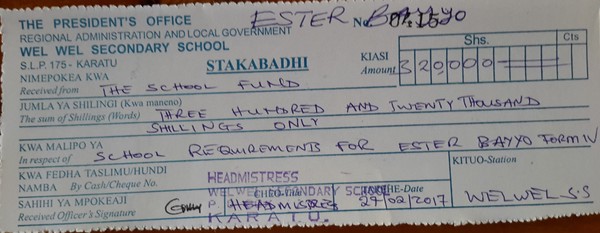 THE PRESIDENT'S OFFICE ESTER BAYYO
REGIONAL ADMINISTRATION AND LOCAL GOVERNMENT No.
WEL WEL SECONDARY SCHOOL
S.L.P. 175 - KARATU STAKABADHI
KIASI Shs. Cts
Amount 320,000
NIMEPOKEA KWA
Received from THE SCHOOL FUND
JUMLA YA SHILINGI (Kwa maneno)
The sum of Shillings (Words) THREE HUNDRED AND TWENTY THOUSAND
SHILLINGS ONLY
KWA MALIPO YA
In respect of SCHOOL REQUIREMENTS FOR ESTER BAYYO FORM IV
KWA FEDHA TASLIMU/HUNDI
NAMBA By Cash/Cheque No.
HEADMISTRESS
WELWEL SECONDARY SCHOOL
KARATU.
SAHIHI YA MPOKEAJI
Received Officer's Signature
HEADMISTRESS
TAREHE-Date
27/02/2017
KITUO-Station
WELWEL S.S